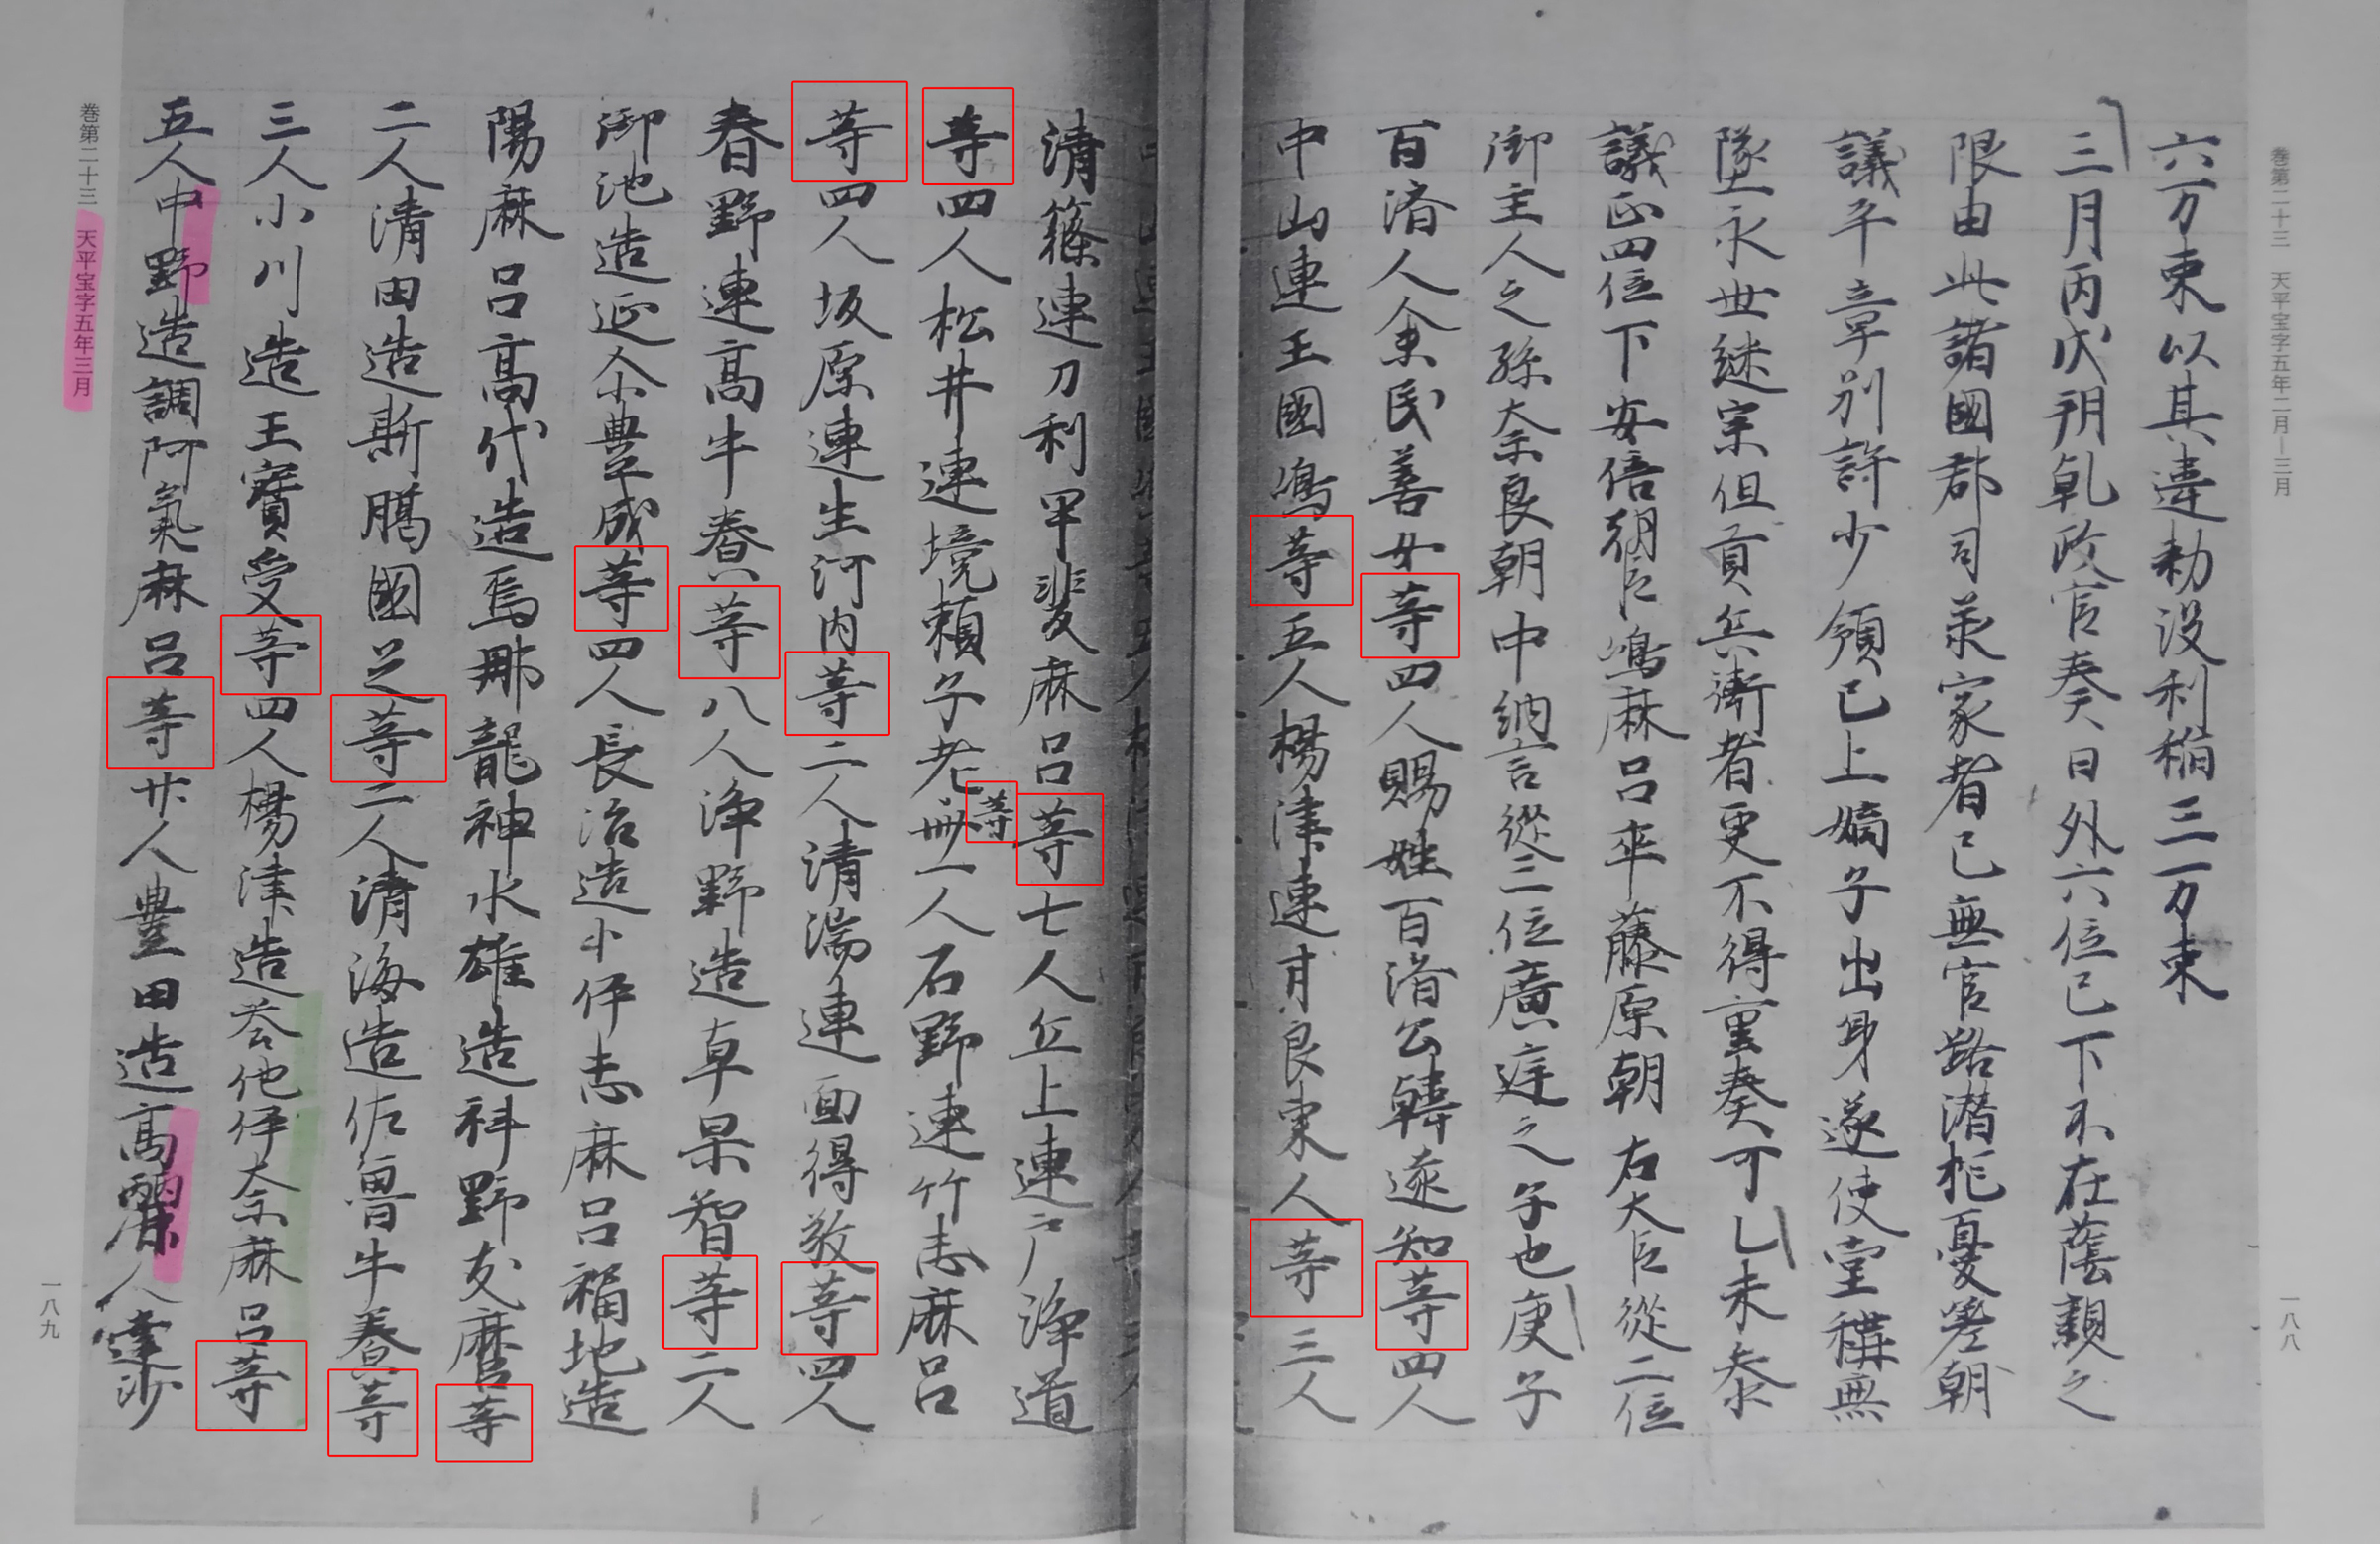 巻第二十三　天平宝字五年二月―三月
一八八
六万束以其違勅没利稲三万束
三月丙戌朔乹政官奏曰外六位已下不在蔭親之
限由此諸國郡司等家者已無官路潜抱憂嗟朝
議平章別許少領已上嫡子出身遂使堂構無
墜永世継宗但貢兵衛者更不得重奏可乙未参
議正四位下安倍朝臣嶋麻呂卒藤原朝右大臣從二位
御主人之孫奈良朝中納言從三位廣庭之子也庚子
百済人余民善女等四人賜姓百済公韓遠知等四人
中山連王國嶋等五人楊津連甘良東人等三人
清篠連刀利甲斐麻呂等七人丘上連戸浄道
等四人松井連境頼子老等卌一人石野連竹志麻呂
等四人坂原連生河内等二人清湍連面得敬等四人
春野連高牛養等八人浄野造卓杲智等二人
御池造延尒豊成等四人長沼造伊志麻呂福地造
陽麻呂高代造烏那龍神水雄造科野友麿等
二人清田造斯臈國足等二人清海造佐魯牛養等
三人小川造王寶受等四人楊津造荅他伊奈麻呂等
五人中野造調阿氣麻呂等廿人豊田造高麗人達沙
巻第二十三　天平宝字五年三月
一八九